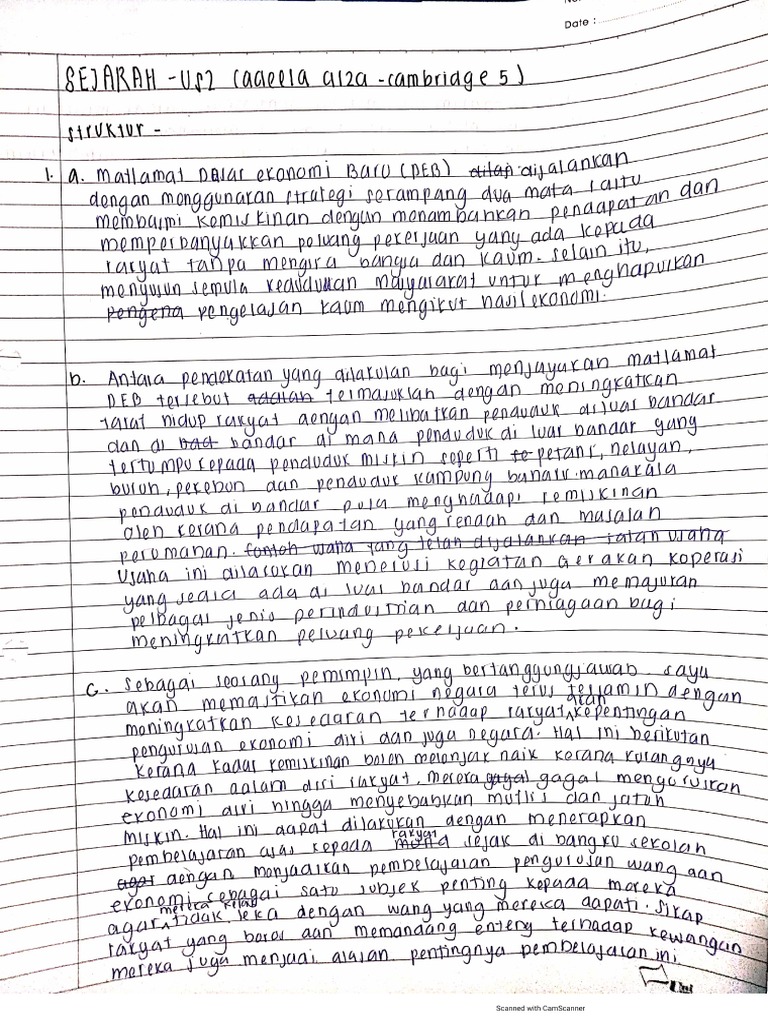 Date :
SEJARAH - US2 (adeela aiza - cambridge 5)
struktur -
1. a. Matlamat Dasar ekonomi Baru (DEB) dijalankan
dengan menggunakan strategi serampang dua mata iaitu
membasmi kemiskinan dengan menambahkan pendapatan dan
memperbanyakkan peluang pekerjaan yang ada kepada
rakyat tanpa mengira bangsa dan kaum. selain itu,
menyusun semula kedudukan masyarakat untuk menghapuskan
pengena pengelasan kaum mengikut hasil ekonomi.
b. Antara pendekatan yang dilakukan bagi menjayakan matlamat
DEB tersebut adalah termasuklah dengan meningkatkan
taraf hidup rakyat dengan melibatkan penduduk di luar bandar
dan di bad bandar di mana penduduk di luar bandar yang
tertumpu kepada penduduk miskin seperti te petani, nelayan,
buruh, pekebun dan penduduk kampung baharu. manakala
penduduk di bandar pula menghadapi kemiskinan
oleh kerana pendapatan yang rendah dan masalah
perumahan. contoh usaha yang telah dijalankan ialah usaha
Usaha ini dilakukan menerusi kegiatan Gerakan Koperasi
yang sedia ada di luar bandar dan juga memajukan
pelbagai jenis perindustrian dan perniagaan bagi
meningkatkan peluang pekerjaan.
c. Sebagai seorang pemimpin, yang bertanggungjawab saya
akan memastikan ekonomi negara terus terjamin dengan
meningkatkan kesedaran terhadap rakyat akan kepentingan
pengurusan ekonomi diri dan juga negara. Hal ini berikutan
kerana kadar kemiskinan boleh melonjak naik kerana kurangnya
kesedaran dalam diri rakyat, mereka gagal gagal menguruskan
ekonomi diri hingga menyebabkan muflis dan jatuh
miskin. Hal ini dapat dilakukan dengan menerapkan
pembelajaran asas kepada rakyat sejak di bangku sekolah
agar dengan menjadikan pembelajaran pengurusan wang dan
ekonomi sebagai satu subjek penting kepada mereka
agar mereka kelak tidak leka dengan wang yang mereka dapati. Sikap
rakyat yang boros dan memandang enteng terhadap kewangan
mereka juga menjadi alasan pentingnya pembelajaran ini
Scanned with CamScanner